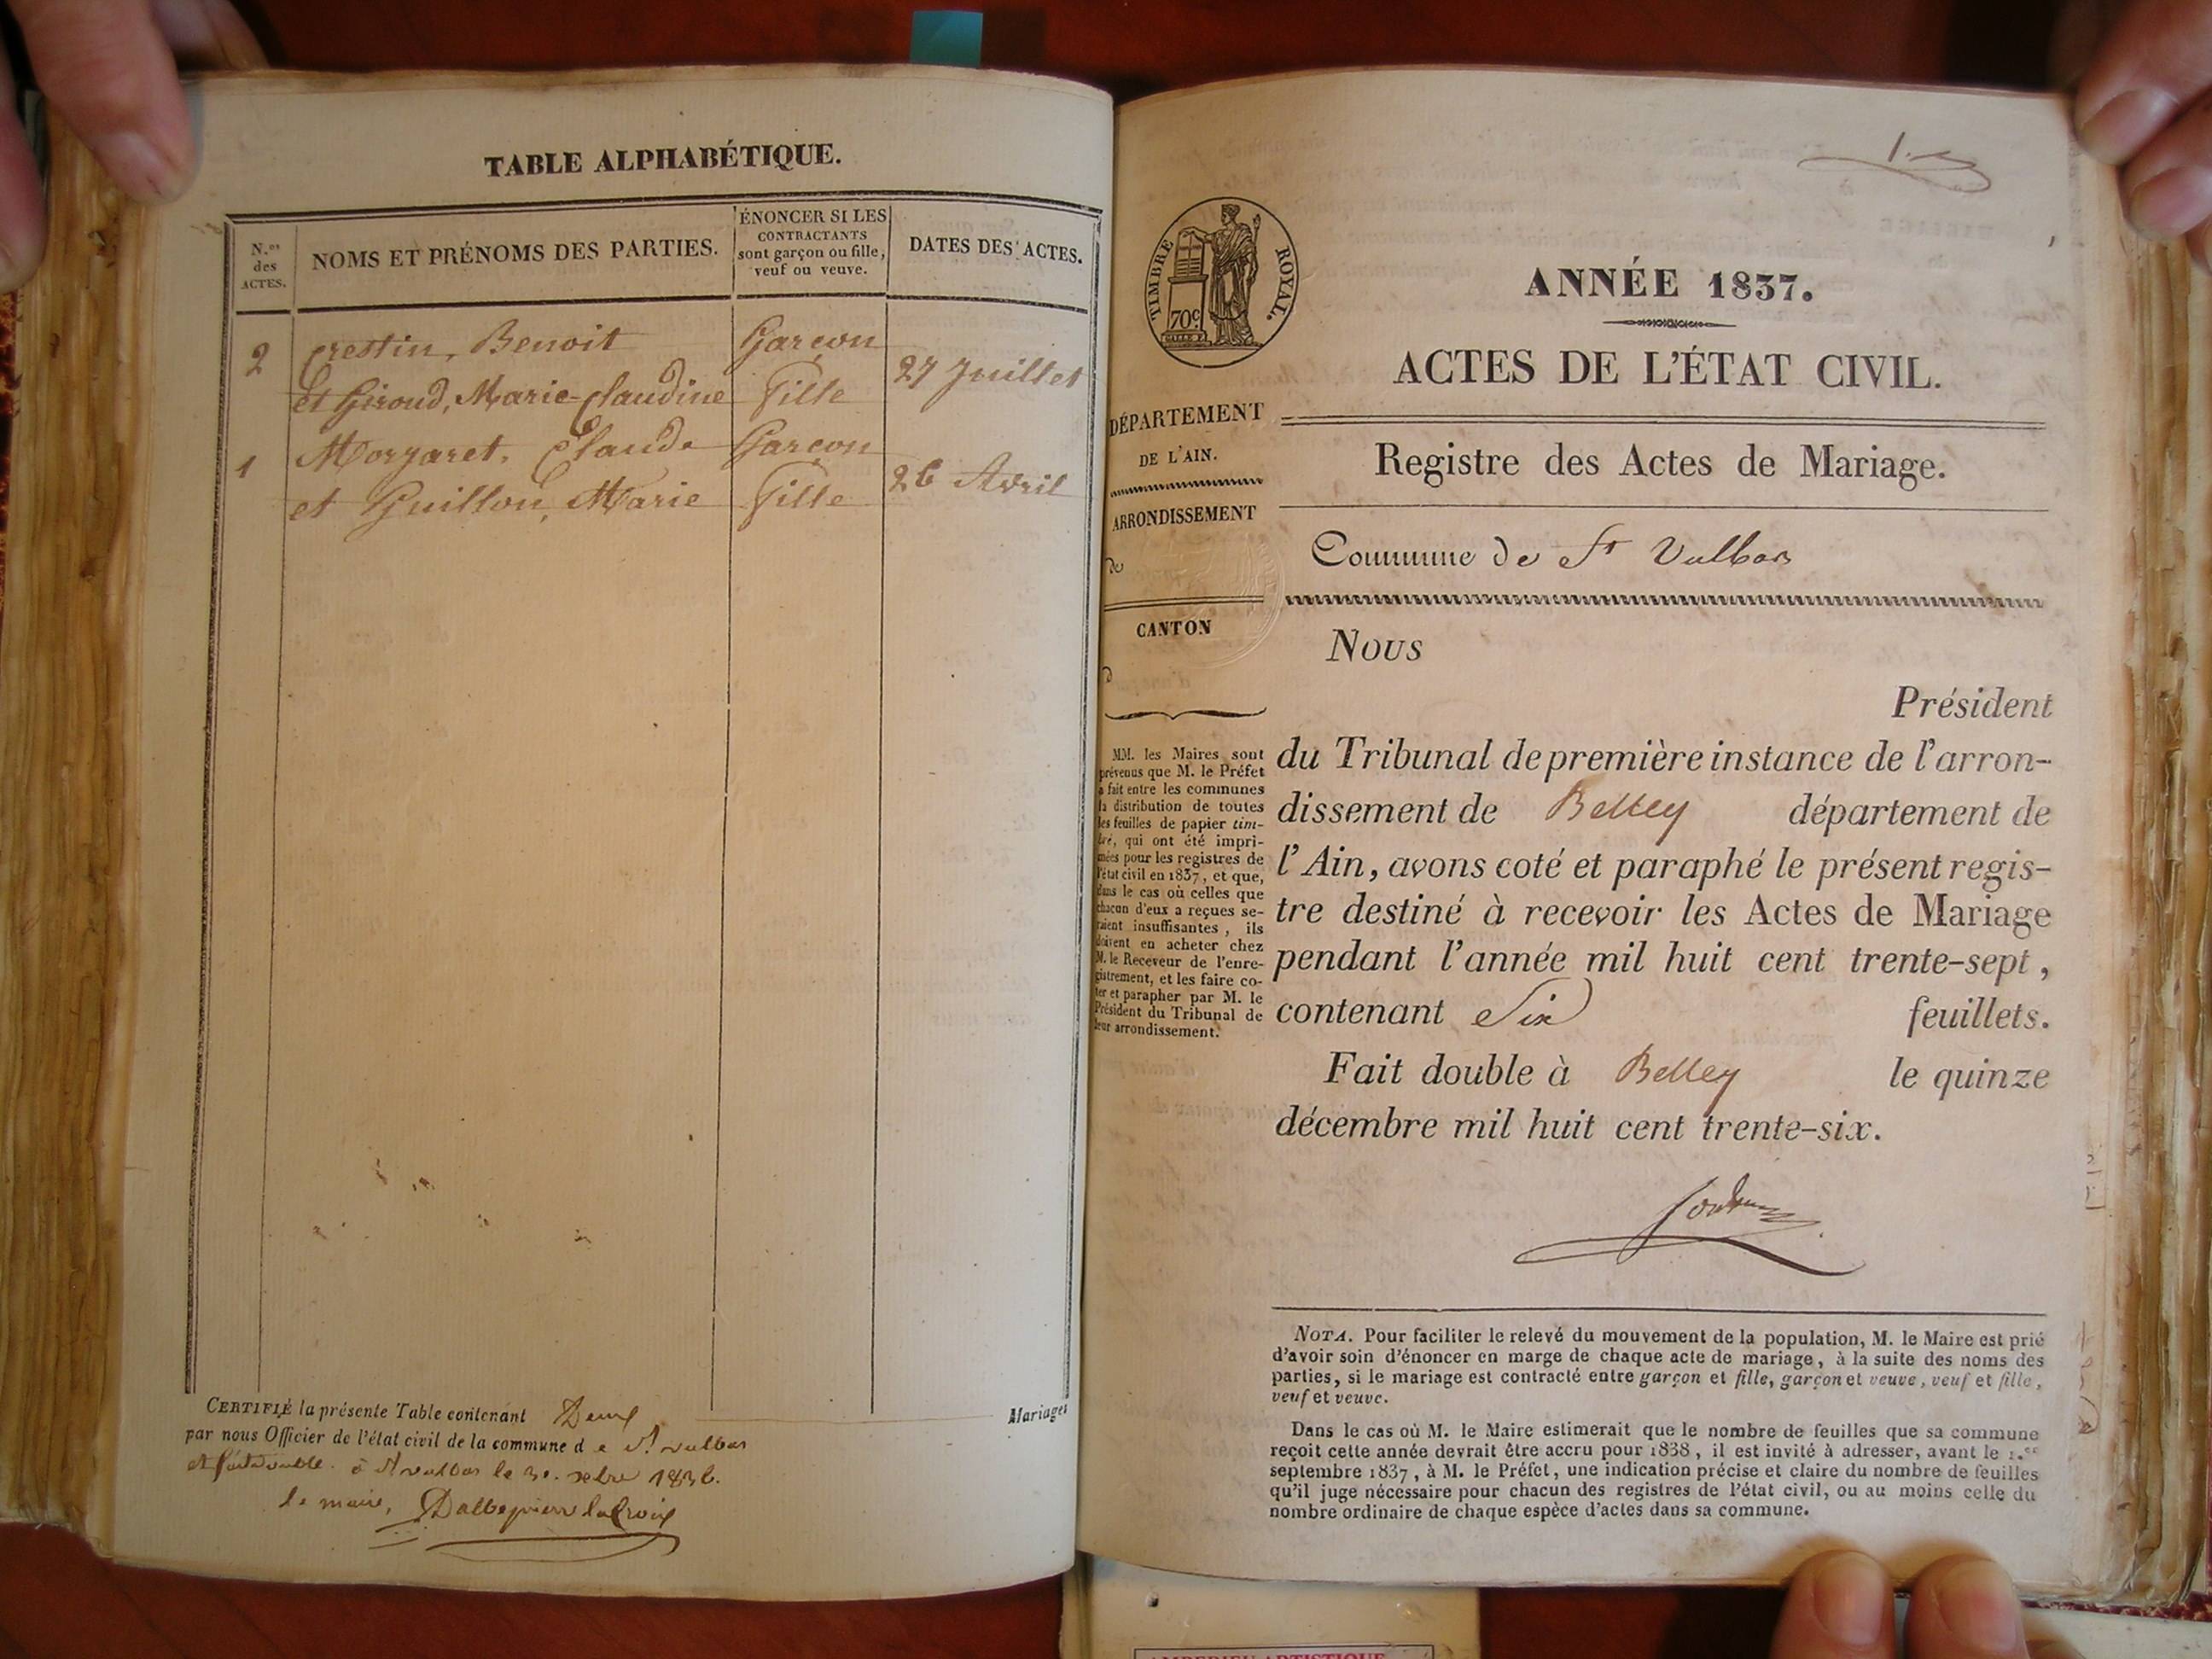 TABLE ALPHABÉTIQUE.
N.os des ACTES.
NOMS ET PRÉNOMS DES PARTIES.
ÉNONCER SI LES
CONTRACTANTS
sont garçon ou fille,
veuf ou veuve.
DATES DES ACTES.
2 Crestin, Benoit Garçon
et Giroud, Marie-Claudine fille 27 Juillet
Morgaret, Claude Garçon
1 et Guillon, Marie fille 26 Avril
CERTIFIÉ la présente Table contenant Deux Mariages
par nous Officier de l'état civil de la commune de St vulbas
et fait double à St vulbas le 30 xbre 1836.
le maire, Dalbepierre lacroix
1.er
TIMBRE ROYAL.
70c
ANNÉE 1837.
ACTES DE L'ÉTAT CIVIL.
DÉPARTEMENT
DE L'AIN.
ARRONDISSEMENT
de
CANTON
d
Registre des Actes de Mariage.
Commune de St Vulbas
MM. les Maires sont
prévenus que M. le Préfet
a fait entre les communes
la distribution de toutes
les feuilles de papier tim-
bré, qui ont été impri-
mées pour les registres de
l'état civil en 1837, et que,
dans le cas où celles que
chacun d'eux a reçues se-
raient insuffisantes, ils
doivent en acheter chez
M. le Receveur de l'enre-
gistrement, et les faire co-
ter et parapher par M. le
Président du Tribunal de
leur arrondissement.
Nous
Président
du Tribunal de première instance de l'arron-
dissement de Belley département de
l'Ain, avons coté et paraphé le présent regis-
tre destiné à recevoir les Actes de Mariage
pendant l'année mil huit cent trente-sept,
contenant Six feuillets.
Fait double à Belley le quinze
décembre mil huit cent trente-six.
NOTA. Pour faciliter le relevé du mouvement de la population, M. le Maire est prié
d'avoir soin d'énoncer en marge de chaque acte de mariage, à la suite des noms des
parties, si le mariage est contracté entre garçon et fille, garçon et veuve, veuf et fille,
veuf et veuve.
Dans le cas où M. le Maire estimerait que le nombre de feuilles que sa commune
reçoit cette année devrait être accru pour 1838, il est invité à adresser, avant le 1.er
septembre 1837, à M. le Préfet, une indication précise et claire du nombre de feuilles
qu'il juge nécessaire pour chacun des registres de l'état civil, ou au moins celle du
nombre ordinaire de chaque espèce d'actes dans sa commune.
AMBERIEU ARTISTIQUE